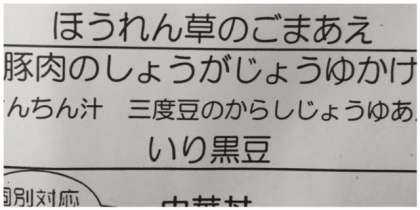 ほうれん草のごまあえ
豚肉のしょうがじょうゆかけ
んちん汁　三度豆のからしじょうゆあ
いり黒豆
個別対応
中華丼